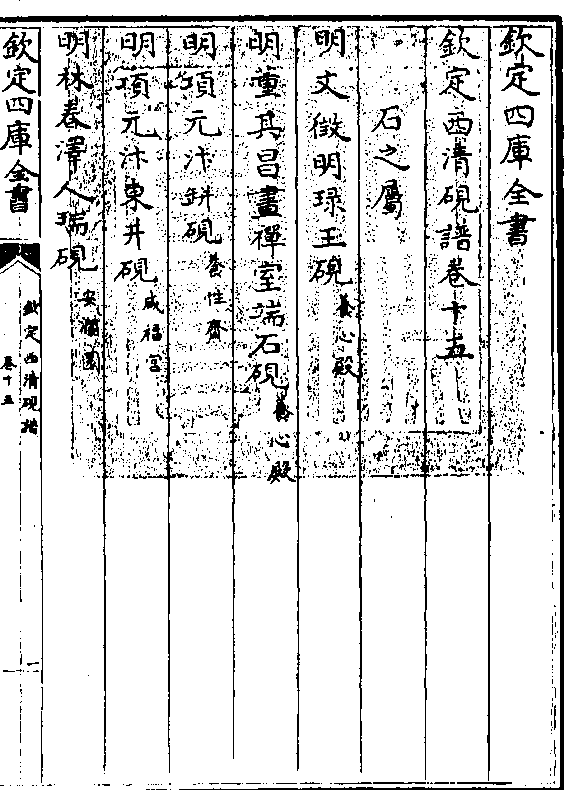 欽定四庫全書
欽定西清硯譜卷十五
石之屬
明文徵明緑玉硯 養心殿
明董其昌畫禪室端石硯 養心殿
明項元汴缾硯 養性齋
明項元汴東井硯 咸福宮
明林春澤人瑞硯 安瀾園
欽定四庫全書
欽定西清硯譜
卷十五
一